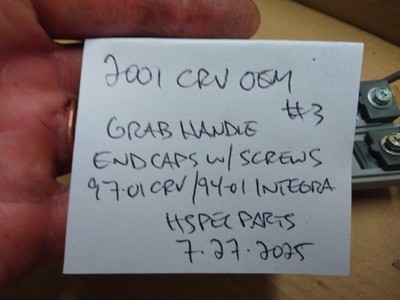 2001 CRV OEM
#3
GRAB HANDLE
ENDCAPS W/SCREWS
97-01 CRV/94-01 INTEGRA
HSPEC PARTS
7.27.2025